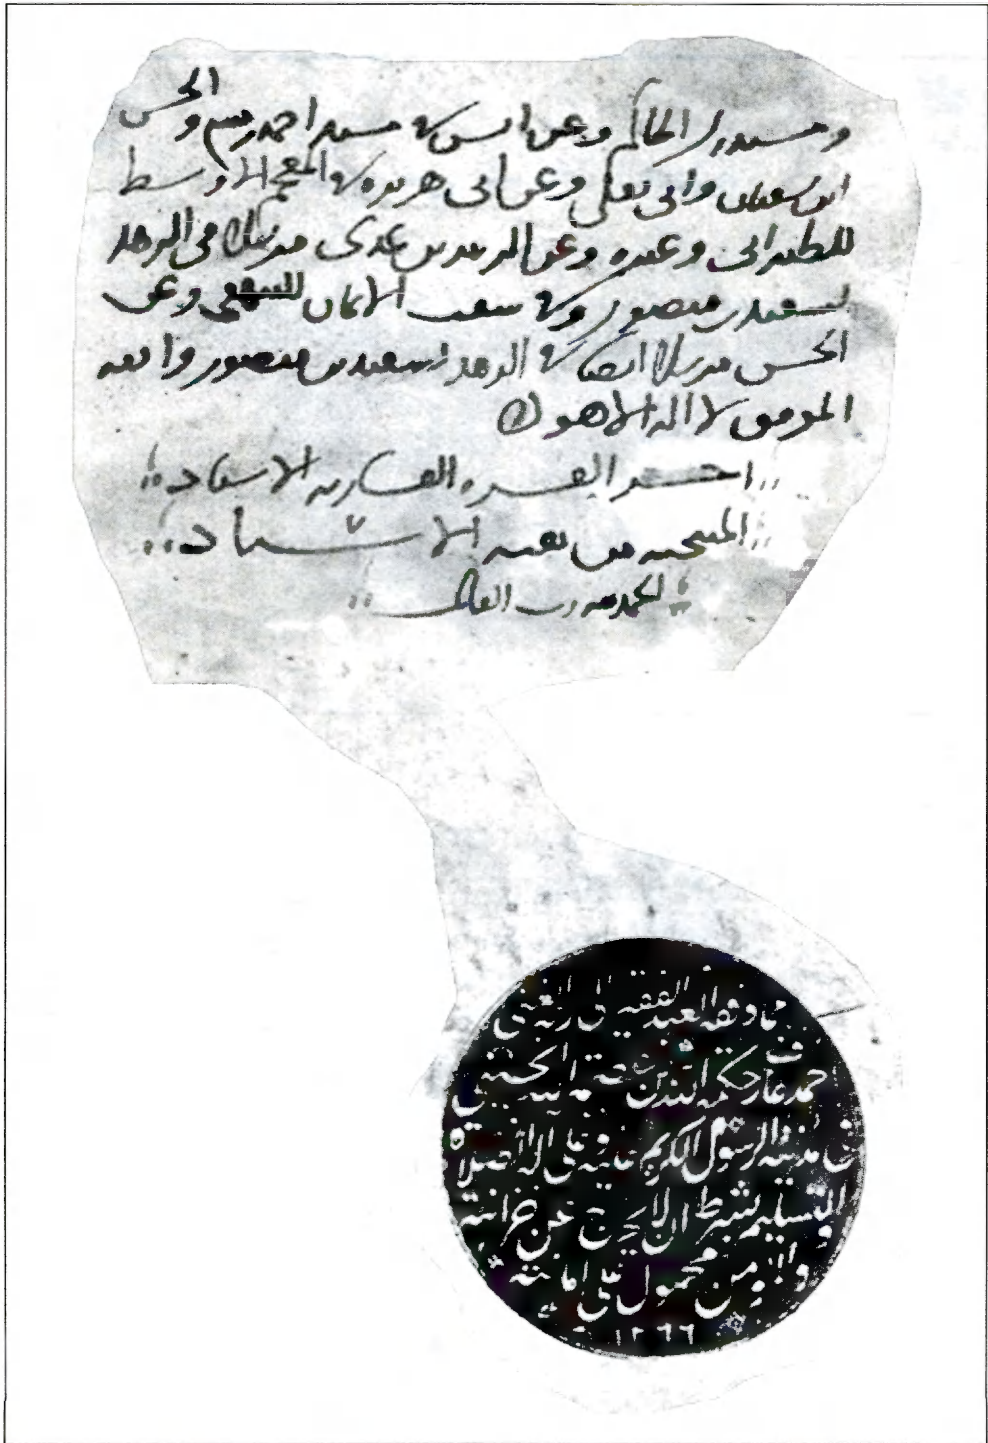 ومستدرك الحاكم وعن انس في مسند احمد والحسن
ابن سفيان وابي يعلى وعن ابي هريره في المعجم الاوسط
للطبراني وغيره وعن عدى مرسلا في الزهد
لسعيد بن منصور وفي شعب الايمان للبيهقي وعن
الحسن مرسلا ايضا في الزهد لسعيد بن منصور والله
الموفق لا اله الا هو
الاسناد
الحمد لله رب العالمين
مما وقفه العبد الفقير الى ربه الغني
احمد عارف حكمة الله بن عصمة الله الحسيني
في مدينة الرسول الكريم عليه وعلى آله الصلاة
والتسليم بشرط ان لا يخرج عن خزانته
والمؤمن محمول على امانته
١٢٦٦